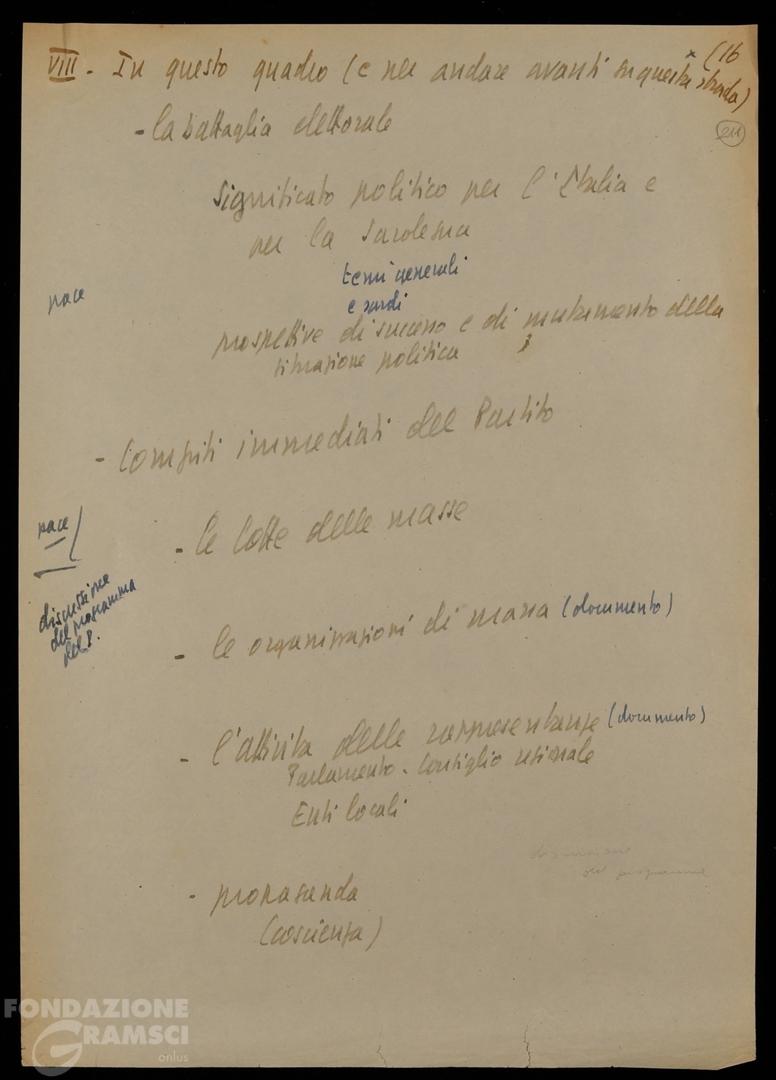 (16
VIII - In questo quadro (e per andare avanti su questa strada)
24
- la battaglia elettorale
significato politico per l'Italia e
per la Sardegna
temi generali
e sardi
pace
prospettive di successo e di mutamento della
situazione politica
- Compiti immediati del Partito
pace
- le lotte delle masse
discussione
del programma
del P.
- le organizzazioni di massa (documento)
- l'attività delle rappresentanze (documento)
Parlamento - Consiglio regionale
Enti locali
discussione
del programma
- propaganda
(coscienza)
FONDAZIONE
GRAMSCI
onlus